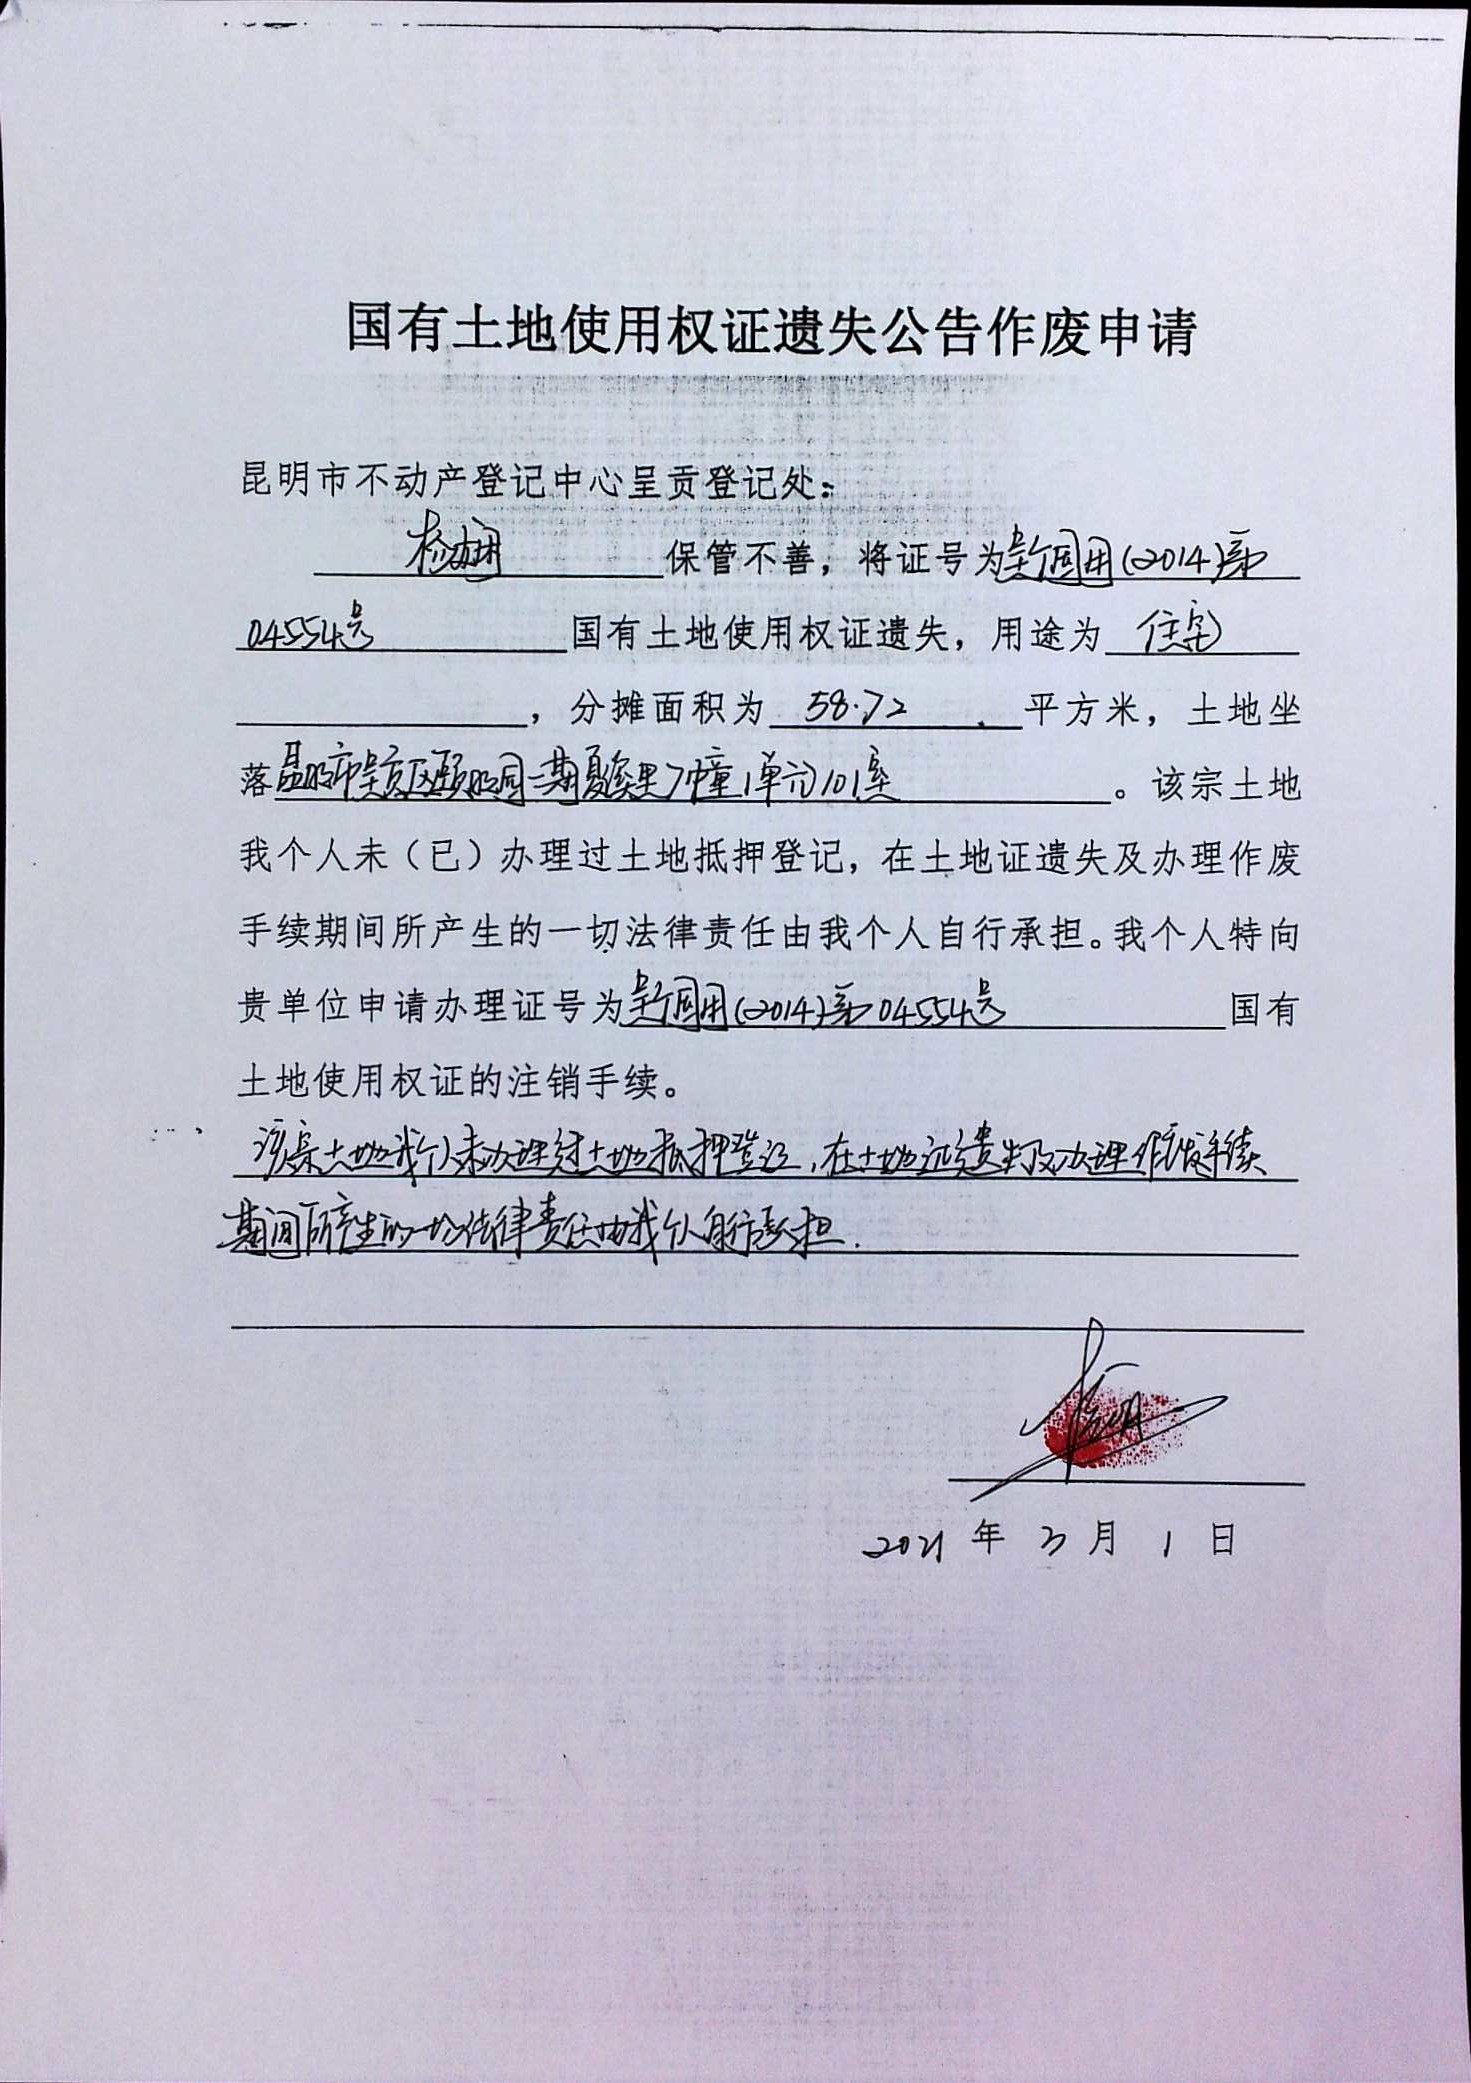 国有土地使用权证遗失公告作废申请
昆明市不动产登记中心呈贡登记处:
保管不善，将证号为呈个国用(2014)第
04554号 国有土地使用权证遗失，用途为 住宅
，分摊面积为 58.72 平方米，土地坐
落昆明市呈贡区颐明园二期夏溪里7幢1单元101室 。该宗土地
我个人未（已）办理过土地抵押登记，在土地证遗失及办理作废
手续期间所产生的一切法律责任由我个人自行承担。我个人特向
贵单位申请办理证号为呈个国用(2014)第04554号 国有
土地使用权证的注销手续。
该宗土地我个人未办理过土地抵押登记,在土地证遗失及办理作废手续
期间所产生的一切法律责任由我个人自行承担.
2021 年 3 月 1 日